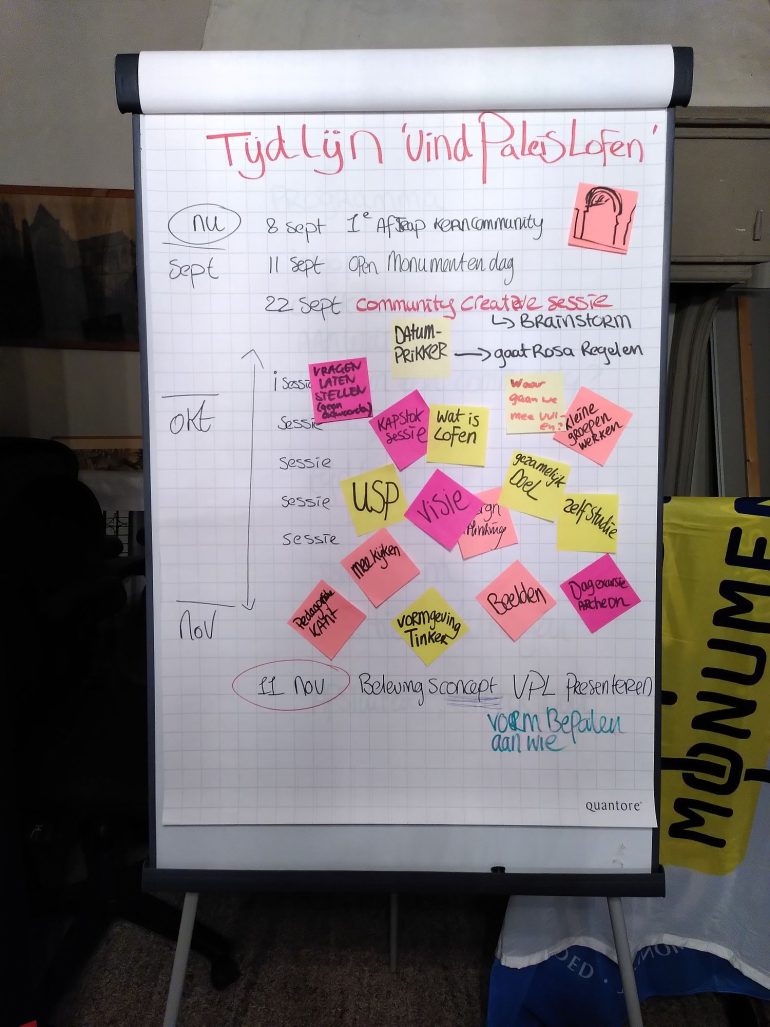 Tijdlijn 'Vind Paleis Lofen'
nu 8 sept 1e Aftrap kerncommunity
sept 11 sept open Monumentendag
22 sept community creatieve sessie
↳ BRAINSTORM
DATUM-
PRIKKER → gaat Rosa Regelen
1 sessie
VRAGEN
LATEN
STELLEN
(geen
antwoorden)
Waar
gaan we
mee vull-
en?
okt
sessie
KAPSTOK
SESSIE
wat is
Lofen
kleine
groepen
werken
sessie
sessie
USP
VISIE
gezamelijk
Doel
thinking
zelfstudie
sessie
mee kijken
KAnt
VORMGEVING
Tinker
Beelden
Dagexcursie
ARCHEON
nov
11 nov Belevingsconcept VPL presenteren
vorm Bepalen
aan wie
quantore
MONUMEN